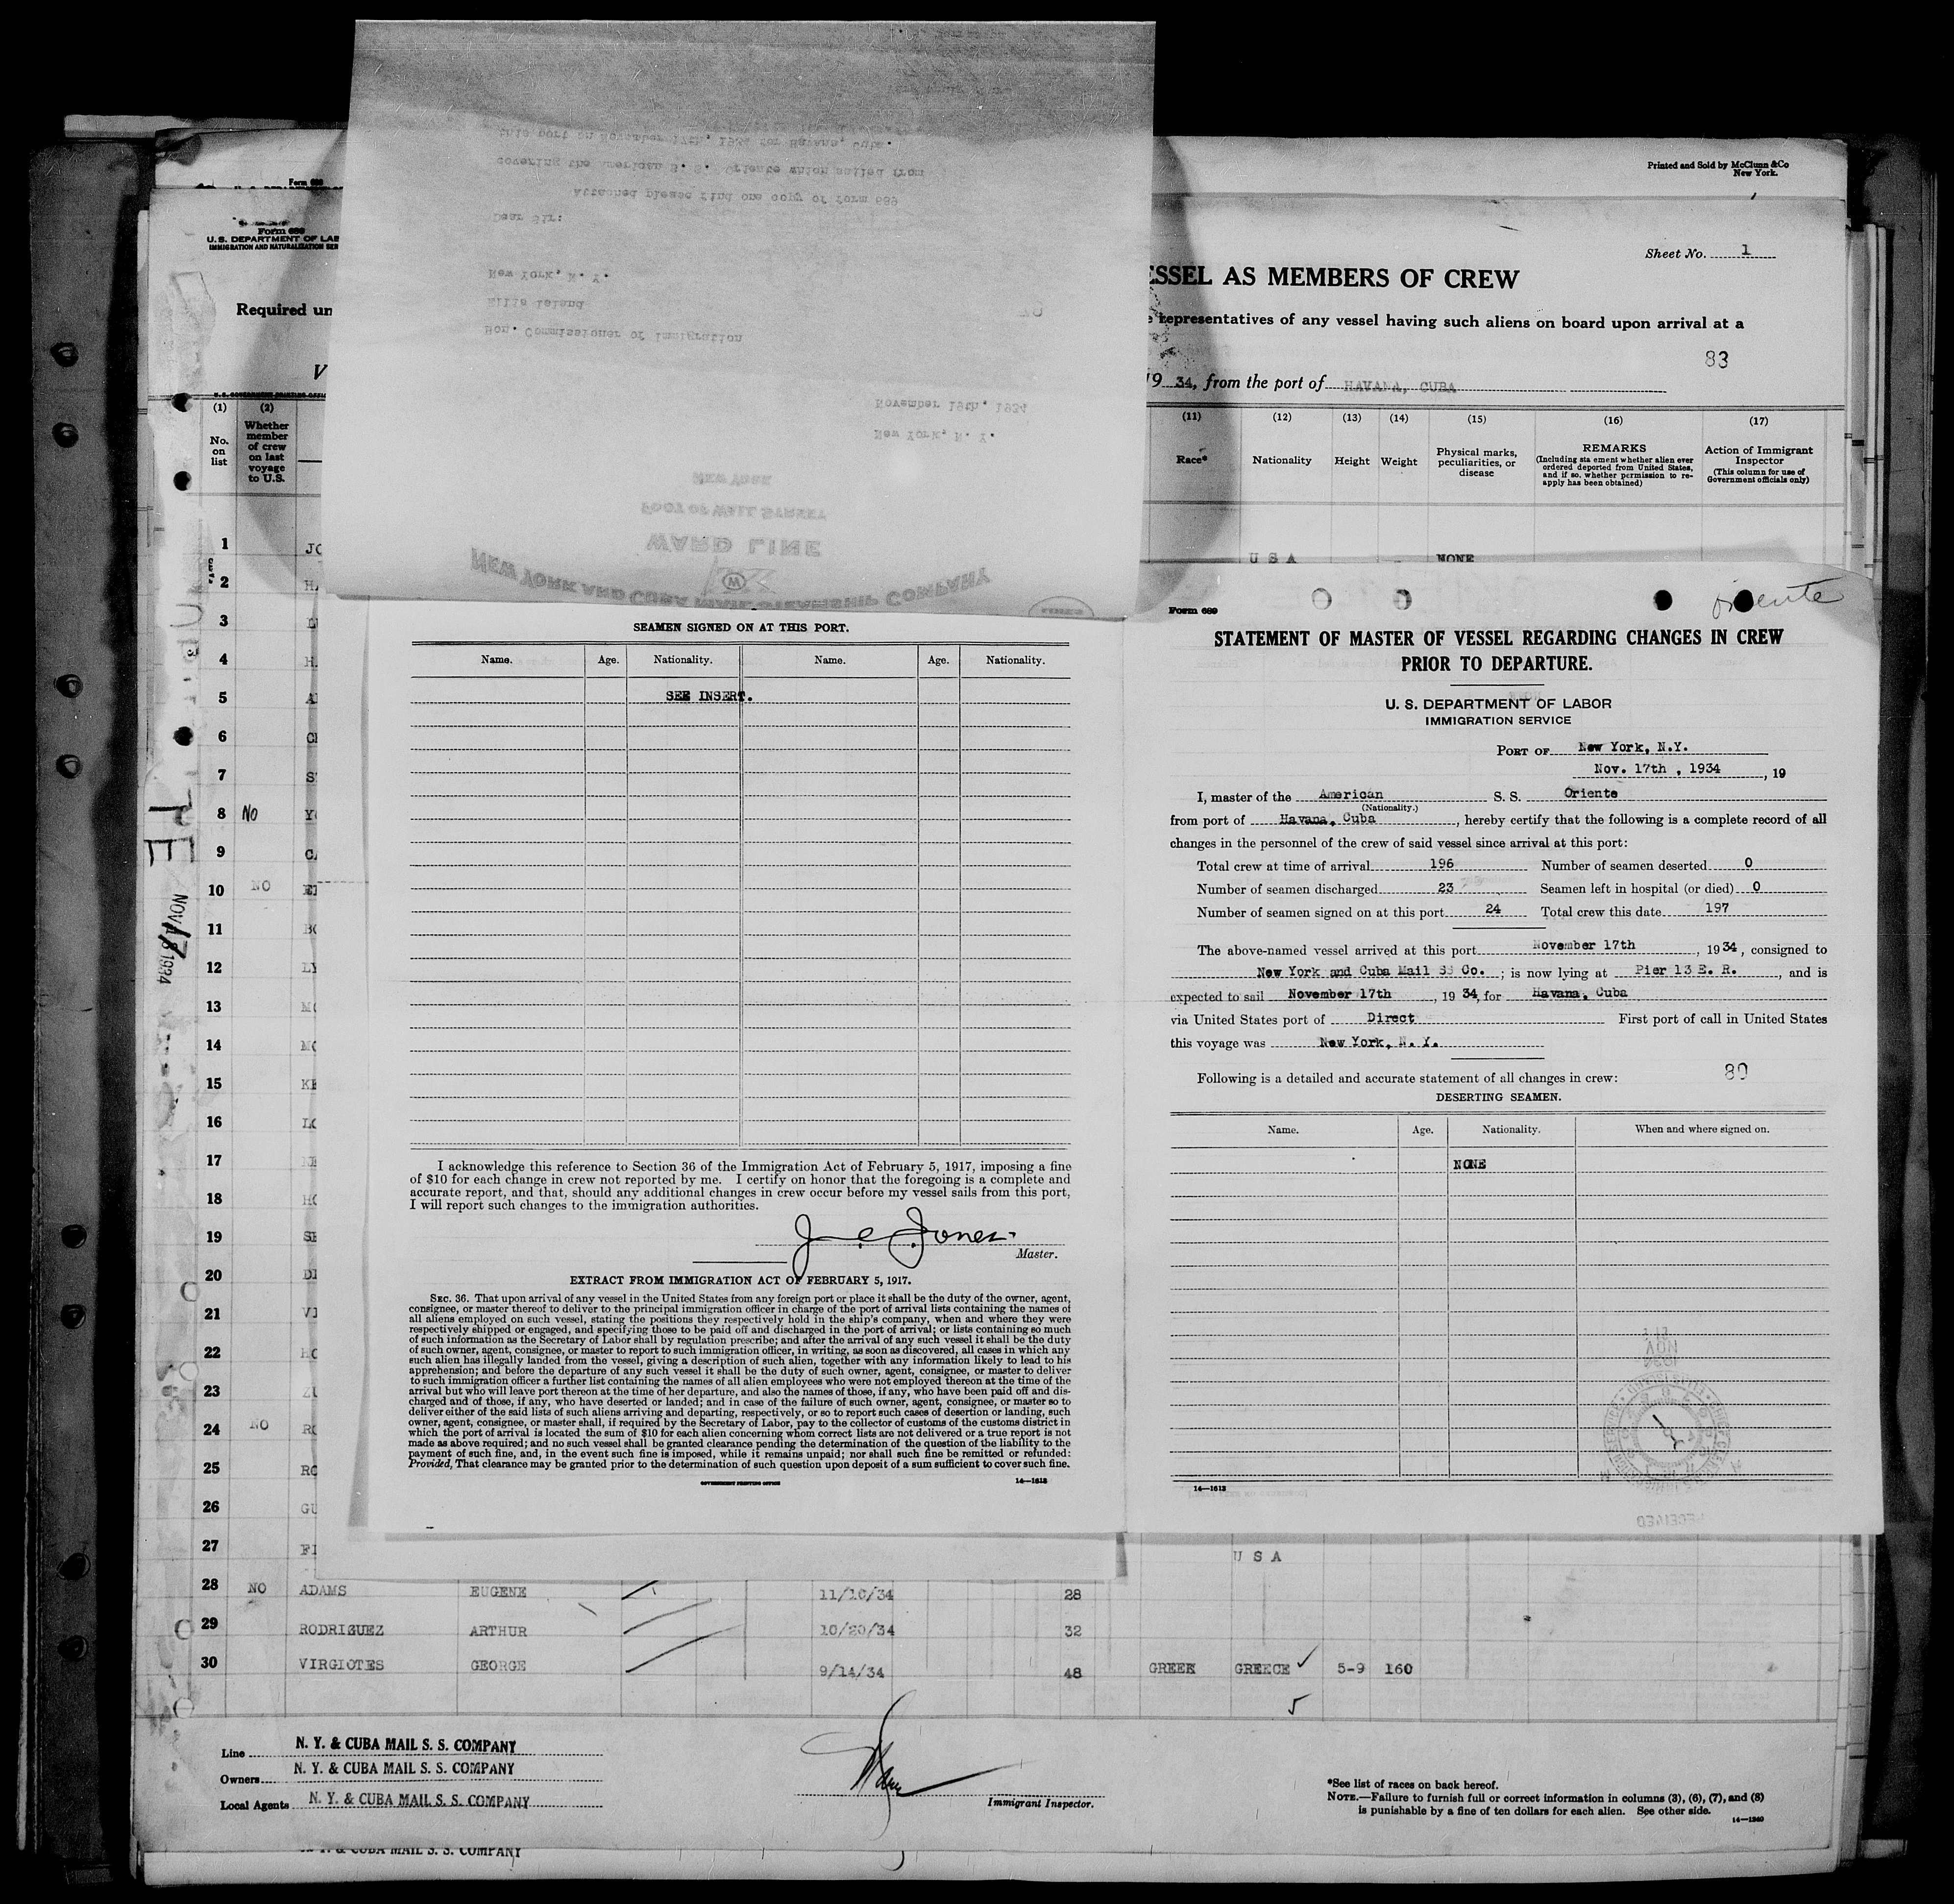 NEW YORK AND CUBA MAIL STEAMSHIP COMPANY
WARD LINE
FOOT OF WALL STREET
NEW YORK
New York, N. Y.
November 19th, 1934
Hon. Commissioner of Immigration
Ellis Island
New York, N. Y.
Dear Sir:
Attached please find one copy of form 689
covering the American S. S. Oriente which sailed from
this port on November 17th, 1934 for Havana, Cuba.
Printed and Sold by McClunn & Co
New York.
Form 689
Form 689
U. S. DEPARTMENT OF LAB
IMMIGRATION AND NATURALIZATION SER
Sheet No. 1
ESSEL AS MEMBERS OF CREW
Required un
representatives of any vessel having such aliens on board upon arrival at a
83
V
19 34, from the port of HAVANA, CUBA
(1) (2) (11) (12) (13) (14) (15) (16) (17)
No. on list
Whether member of crew on last voyage to U.S.
Race*
Nationality
Height
Weight
Physical marks, peculiarities, or disease
REMARKS
(Including statement whether alien ever ordered deported from United States, and if so, whether permission to reapply has been obtained)
Action of Immigrant Inspector
(This column for use of Government officials only)
U S A NONE
1 JO
2 H
3
4 H
5 A
6
7 S
8 NO Y
9 CA
10 NO
11 BO
12 LY
13 MC
14 MC
15 KE
16 LO
17
18 HO
19 SE
20 DI
21 VI
22 HO
23 ZU
24 NO RO
25 RO
26 GU
27 FI U S A
28 NO ADAMS EUGENE 11/10/34 28
29 RODRIGUEZ ARTHUR 10/20/34 32
30 VIRGIOTES GEORGE 9/14/34 48 GREEK GREECE 5-9 160
5
Line N. Y. & CUBA MAIL S. S. COMPANY
Owners N. Y. & CUBA MAIL S. S. COMPANY
Local Agents N. Y. & CUBA MAIL S. S. COMPANY
Immigrant Inspector.
*See list of races on back hereof.
NOTE.—Failure to furnish full or correct information in columns (3), (6), (7), and (8)
is punishable by a fine of ten dollars for each alien. See other side.
14—1240
N. Y. & CUBA MAIL S. S. COMPANY
SEAMEN SIGNED ON AT THIS PORT.
Name. Age. Nationality. Name. Age. Nationality.
SEE INSERT.
I acknowledge this reference to Section 36 of the Immigration Act of February 5, 1917, imposing a fine
of $10 for each change in crew not reported by me. I certify on honor that the foregoing is a complete and
accurate report, and that, should any additional changes in crew occur before my vessel sails from this port,
I will report such changes to the immigration authorities.
J e Jones
Master.
EXTRACT FROM IMMIGRATION ACT OF FEBRUARY 5, 1917.
SEC. 36. That upon arrival of any vessel in the United States from any foreign port or place it shall be the duty of the owner, agent,
consignee, or master thereof to deliver to the principal immigration officer in charge of the port of arrival lists containing the names of
all aliens employed on such vessel, stating the positions they respectively hold in the ship's company, when and where they were
respectively shipped or engaged, and specifying those to be paid off and discharged in the port of arrival; or lists containing so much
of such information as the Secretary of Labor shall by regulation prescribe; and after the arrival of any such vessel it shall be the duty
of such owner, agent, consignee, or master to report to such immigration officer, in writing, as soon as discovered, all cases in which any
such alien has illegally landed from the vessel, giving a description of such alien, together with any information likely to lead to his
apprehension; and before the departure of any such vessel it shall be the duty of such owner, agent, consignee, or master to deliver
to such immigration officer a further list containing the names of all alien employees who were not employed thereon at the time of the
arrival but who will leave port thereon at the time of her departure, and also the names of those, if any, who have been paid off and dis-
charged and of those, if any, who have deserted or landed; and in case of the failure of such owner, agent, consignee, or master so to
deliver either of the said lists of such aliens arriving and departing, respectively, or so to report such cases of desertion or landing, such
owner, agent, consignee, or master shall, if required by the Secretary of Labor, pay to the collector of customs of the customs district in
which the port of arrival is located the sum of $10 for each alien concerning whom correct lists are not delivered or a true report is not
made as above required; and no such vessel shall be granted clearance pending the determination of the question of the liability to the
payment of such fine, and, in the event such fine is imposed, while it remains unpaid; nor shall such fine be remitted or refunded:
Provided, That clearance may be granted prior to the determination of such question upon deposit of a sum sufficient to cover such fine.
GOVERNMENT PRINTING OFFICE 14—1613
Form 689
Oriente
STATEMENT OF MASTER OF VESSEL REGARDING CHANGES IN CREW
PRIOR TO DEPARTURE.
U. S. DEPARTMENT OF LABOR
IMMIGRATION SERVICE
PORT OF New York, N.Y.
Nov. 17th , 1934, 19
I, master of the American S. S. Oriente
(Nationality.)
from port of Havana, Cuba, hereby certify that the following is a complete record of all
changes in the personnel of the crew of said vessel since arrival at this port:
Total crew at time of arrival 196 Number of seamen deserted 0
Number of seamen discharged 23 Seamen left in hospital (or died) 0
Number of seamen signed on at this port 24 Total crew this date 197
The above-named vessel arrived at this port November 17th, 1934, consigned to
New York and Cuba Mail SS Co. ; is now lying at Pier 13 E. R., and is
expected to sail November 17th, 19 34, for Havana, Cuba
via United States port of Direct First port of call in United States
this voyage was New York, N. Y.
Following is a detailed and accurate statement of all changes in crew: 80
DESERTING SEAMEN.
Name. Age. Nationality. When and where signed on.
NONE
14—1613
RECEIVED
NOV
1934
NOV 17 1934